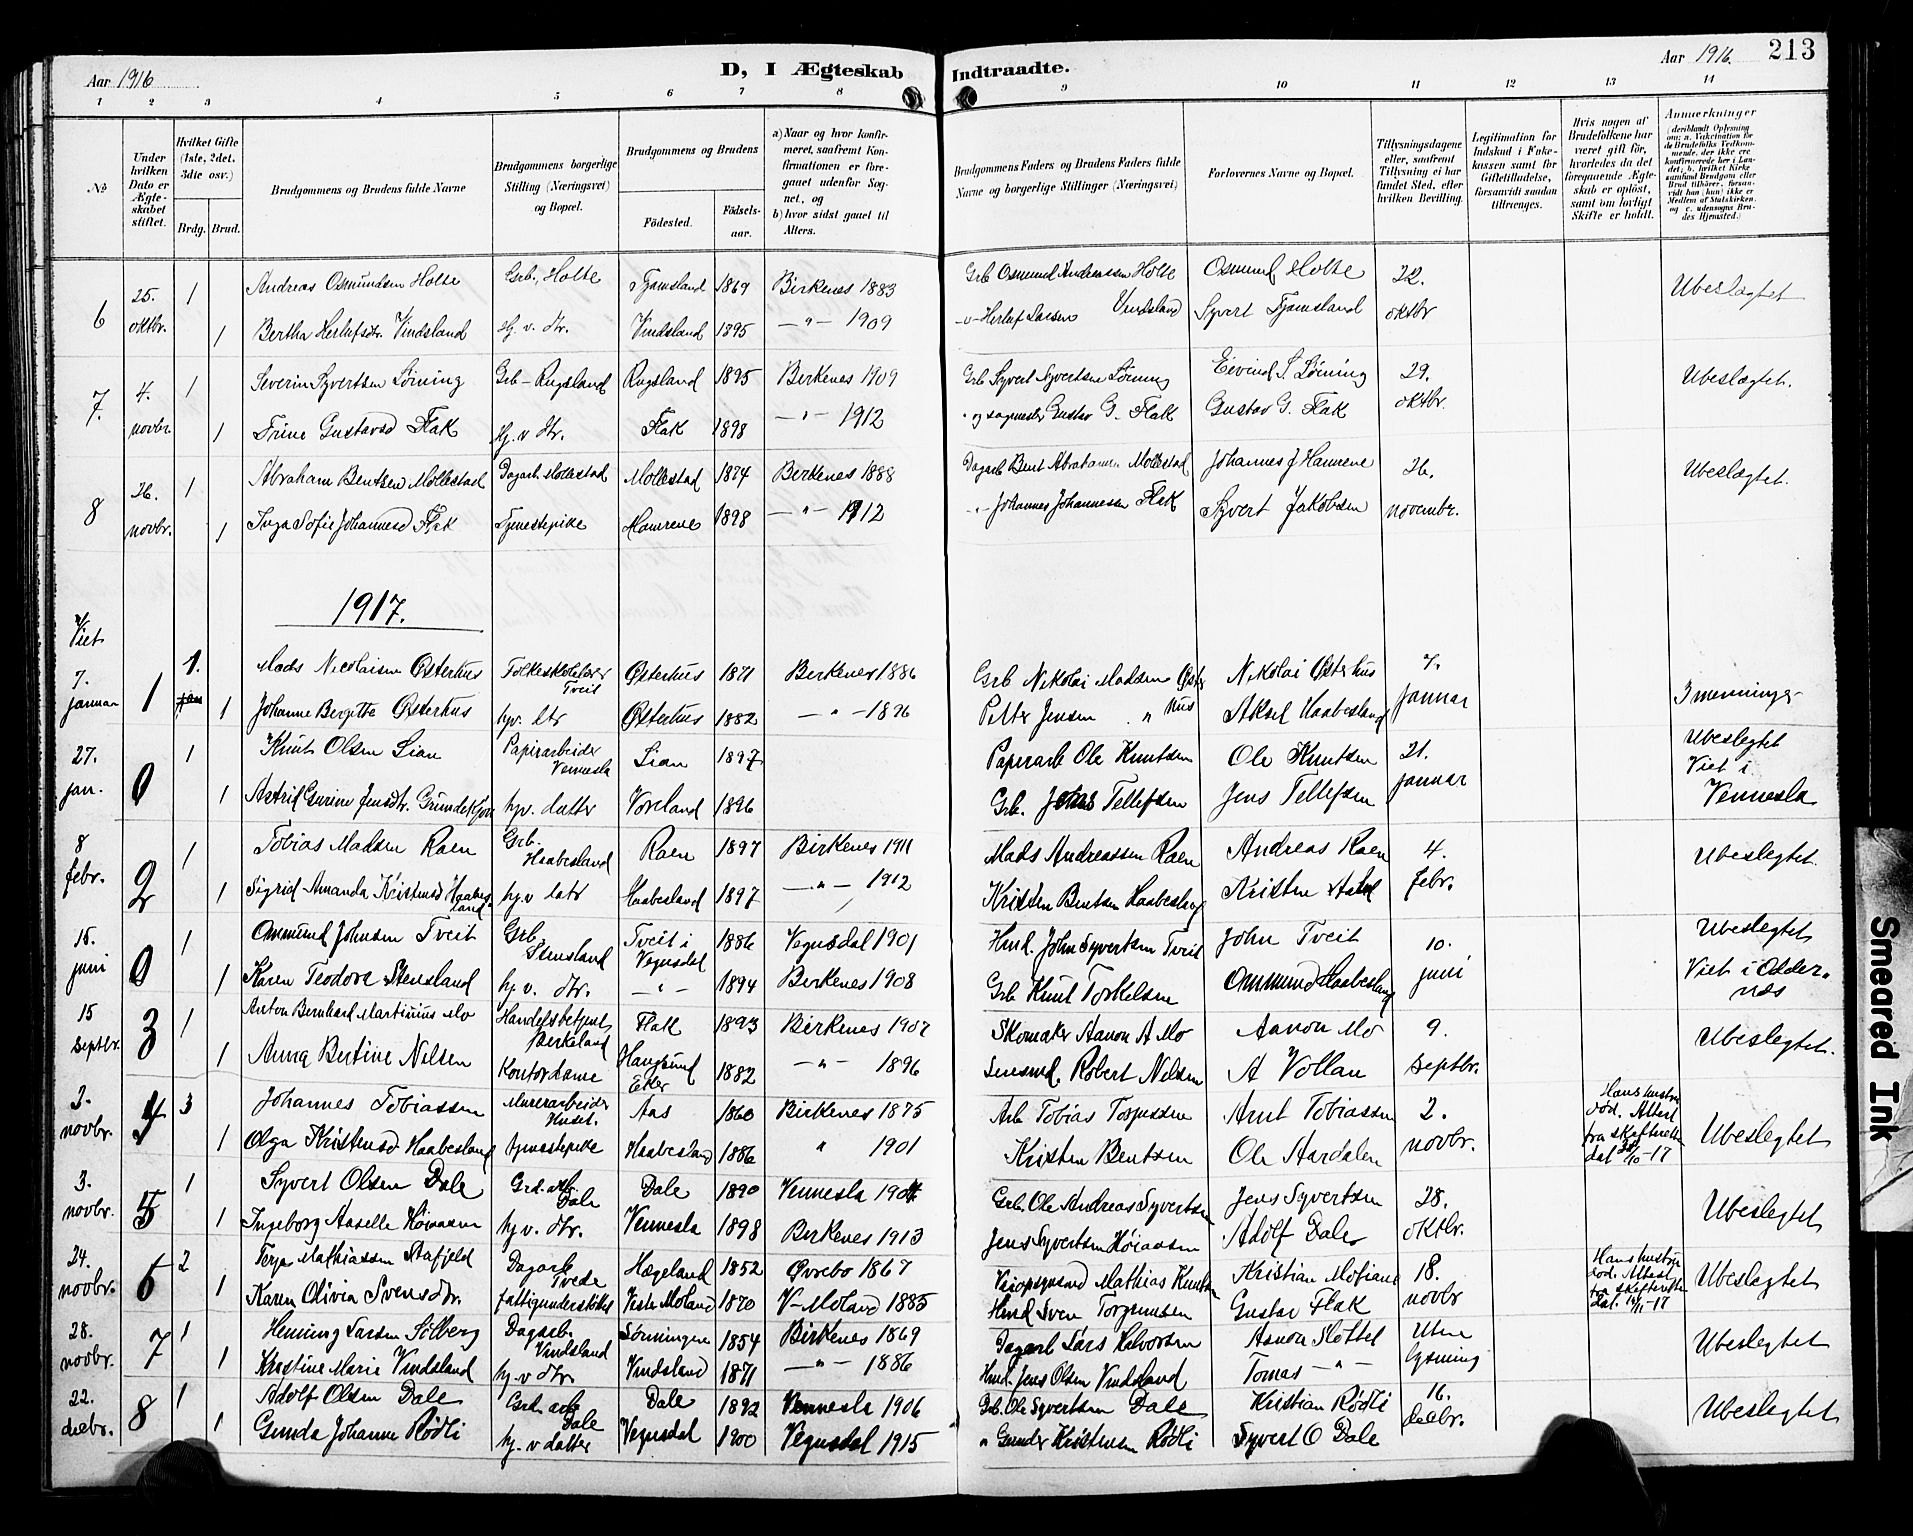 Aar 1916
D, I Ægteskab Indtraadte.
Aar 1916. 213
1 2 3 4 5 6 7 8 9 10 11 12 13 14
No
Under hvilken Dato er Ægteskabet stiftet.
Hvilket Gifte (1ste, 2det, 3die osv.)
Brdg. Brud.
Brudgommens og Brudens fulde Navne
Brudgommens borgerlige Stilling (Næringsvei) og Bopæl.
Brudgommens og Brudens
Födested. Födselsaar.
a) Naar og hvor konfirmeret, saafremt Konfirmationen er foregaaet udenfor Sognet, og
b) hvor sidst gaaet til Alters.
Brudgommens Faders og Brudens Faders fulde Navne og borgerlige Stillinger (Næringsvei)
Forlovernes Navne og Bopæl.
Tillysningsdagene eller, saafremt Tillysning ei har fundet Sted, efter hvilken Bevilling.
Legitimation for Indskud i Enkekassen samt for Giftetilladelse, forsaavidt saadan tiltrænges.
Hvis nogen af Brudefolkene har været gift før, hvorledes da det foregaaende Ægteskab er oplöst, samt om lovligt Skifte er holdt.
Anmerkninger
(deriblandt Oplysning om: a. Vakcination for de Brudefolks Vedkommende, der ikke ere konfirmerede her i Landet; b. hvilket Kirkesamfund Brudgom eller Brud tilhører, forsavidt han (hun) ikke er Medlem af Statskirken, og c. udensogns Brudes Hjemsted.)
6 25. oktbr. 1 Andreas Osmundsen Holte Grb., Holte Tjamsland 1869 Birkenes 1883 Grb Osmund Andreassen Holte Osmund Holte 22. oktbr Ubeslægtet
1 Bertha Herlufsdr. Vindsland hj. v. dtr. Vindsland 1895 —"— 1909 —"— Herluf Larsen Vindsland Syvert Tjamsland
7. 4. novbr. 1 Severin Syvertsen Löining Grb – Rugsland Rugsland 1895 Birkenes 1909 Grb Syvert Syvertsen Löining Eivind S. Löining 29. oktbr. Ubeslægtet.
1 Trine Gustavsd Flak Hj. v dtr. Flak 1898 —"— 1912 " og sagmester Gustav G. Flak Gustav G. Flak
8 26. novbr. 1 Abraham Bentsen Mollestad Dagarb Mollestad Mollestad 1874 Birkenes 1888 Dagarb Bent Abrahamsen Mollestad Johannes J Hamrene 26. novembr. Ubeslægtet.
1 Inga Sofie Johannesd Flak Tjenestepike Hamrene 1898 —"— 1912 —"— Johannes Johannessen Flak Syvert Jakobsen
1917.
Viet
7. januar 1 1. Mads Nicolaisen Østerhus Folkeskolelærer Tveit Østerhus 1871 Birkenes 1886 Grb Nikolai Madsen Østerhus Nikolai Østerhus 7. januar 3 menninger
1 Johanne Bergitte Østerhus hjv. dtr Østerhus 1882 —"— 1896 Petter Jensen " Aksel Haabesland
27. jan. 0 1 Knut Olsen Lian Papirarbeider Vennesla Lian 1897 Papirarb Ole Knutsen Ole Knutsen 21. januar Ubeslegtet Viet i Vennesla
1 Astrid Gurine Jensdtr. hjv. datter 1896 Grb. Jens Tellefsen Jens Tellefsen
8 febr. 2 1 Tobias Madsen Raen Grb. Haabesland Raen 1897 Birkenes 1911 Mads Andreassen Raen Andreas Raen 4. febr. Ubeslegtet.
1 Sigrid Amanda Kristensd Haabesland hj.v datr Haabesland 1897 —"— 1912 Kristen Bentsen Haabesland Kristen
15. juni 0 1 Ommund Johnsen Tveit Grb. Stensland Tveit i Vegusdal 1886 Vegusdal 1901 Hmd. John Syvertsen Tveit John Tveit 10. juni Ubeslegtet Viet i Oddernæs
1 Karen Teodora Stensland hj v. dtr. —"— 1894 Birkenes 1908 Grb Knut Torkelsen Ommund Haabesland
15 septbr. 3 1 Anton Bernhard Martinius Mo Handelsbetjent Birkeland Flak 1893 Birkenes 1907 Skomaker Aanon A Mo Aanon Mo 9. septbr. Ubeslegtet.
1 Anna Bertine Nilsen Kontordame Haugsund Eker 1882 —"— 1896 Robert Nilsen A Vollan
3. novbr. 4 3 Johannes Tobiassen Murerarbeider Aas 1860 Birkenes 1875 Arb Tobias Torjussen Arnt Tobiassen 2. novbr. Hans hustru död. Attest fra skifteretten dat 30/10–17 Ubeslegtet
1 Olga Kristensd Haabesland tjenestepike Haabesland 1886 " 1901 Kristen Bentsen Ole Aardalen
3. novbr. 5 1 Syvert Olsen Dale Grd. arb. Dale Dale 1890 Vennesla 1904 Grb. Ole Andreas Syvertsen Jens Syvertsen 28. oktbr. Ubeslegtet
1 Ingeborg Aaselle Höiaasen hj v. dtr. Vennesla 1898 Birkenes 1913 Jens Syvertsen Höiaasen Adolf Dale
24. novbr. 6 2 Terje Mathiassen Stafjeld Dagarb. Tvede Hægeland 1852 Øvrebo 1867 Mathias Knutsen Kristian 18. novbr Hans hustru död. Attest fra skifteretten dat. 14/11–17 Ubeslegtet
1 Karen Olivia Svensdtr. fattigunderstöttet Vestre Moland 1870 V–Moland 1885 Hmd Sven Torgrimsen Gustav Flak
28. novbr. 7 1 Henning Larsen Sölberg Dagarb. Vindsland 1854 Birkenes 1869 Dagarb Lars Halvorsen Aanon Slottet Uten lysning Ubeslegtet
1 Kristine Marie Vindsland hj. v dtr. Vindsland 1871 —"— 1886 Hmd. Jens Olsen Vindsland Tomas —"—
22. decbr. 8 1 Adolf Olsen Dale Grd. arb Dale Dale 1892 Vennesla 1906 Grb. Ole Syvertsen Dale Kristian Rödli 16. decbr. Ubeslegtet
1 Gunda Johanne Rödli hj. v datter Vegusdal 1900 Vegusdal 1915 " Gunder Kristensen Rödli Syvert O Dale
Smeared Ink